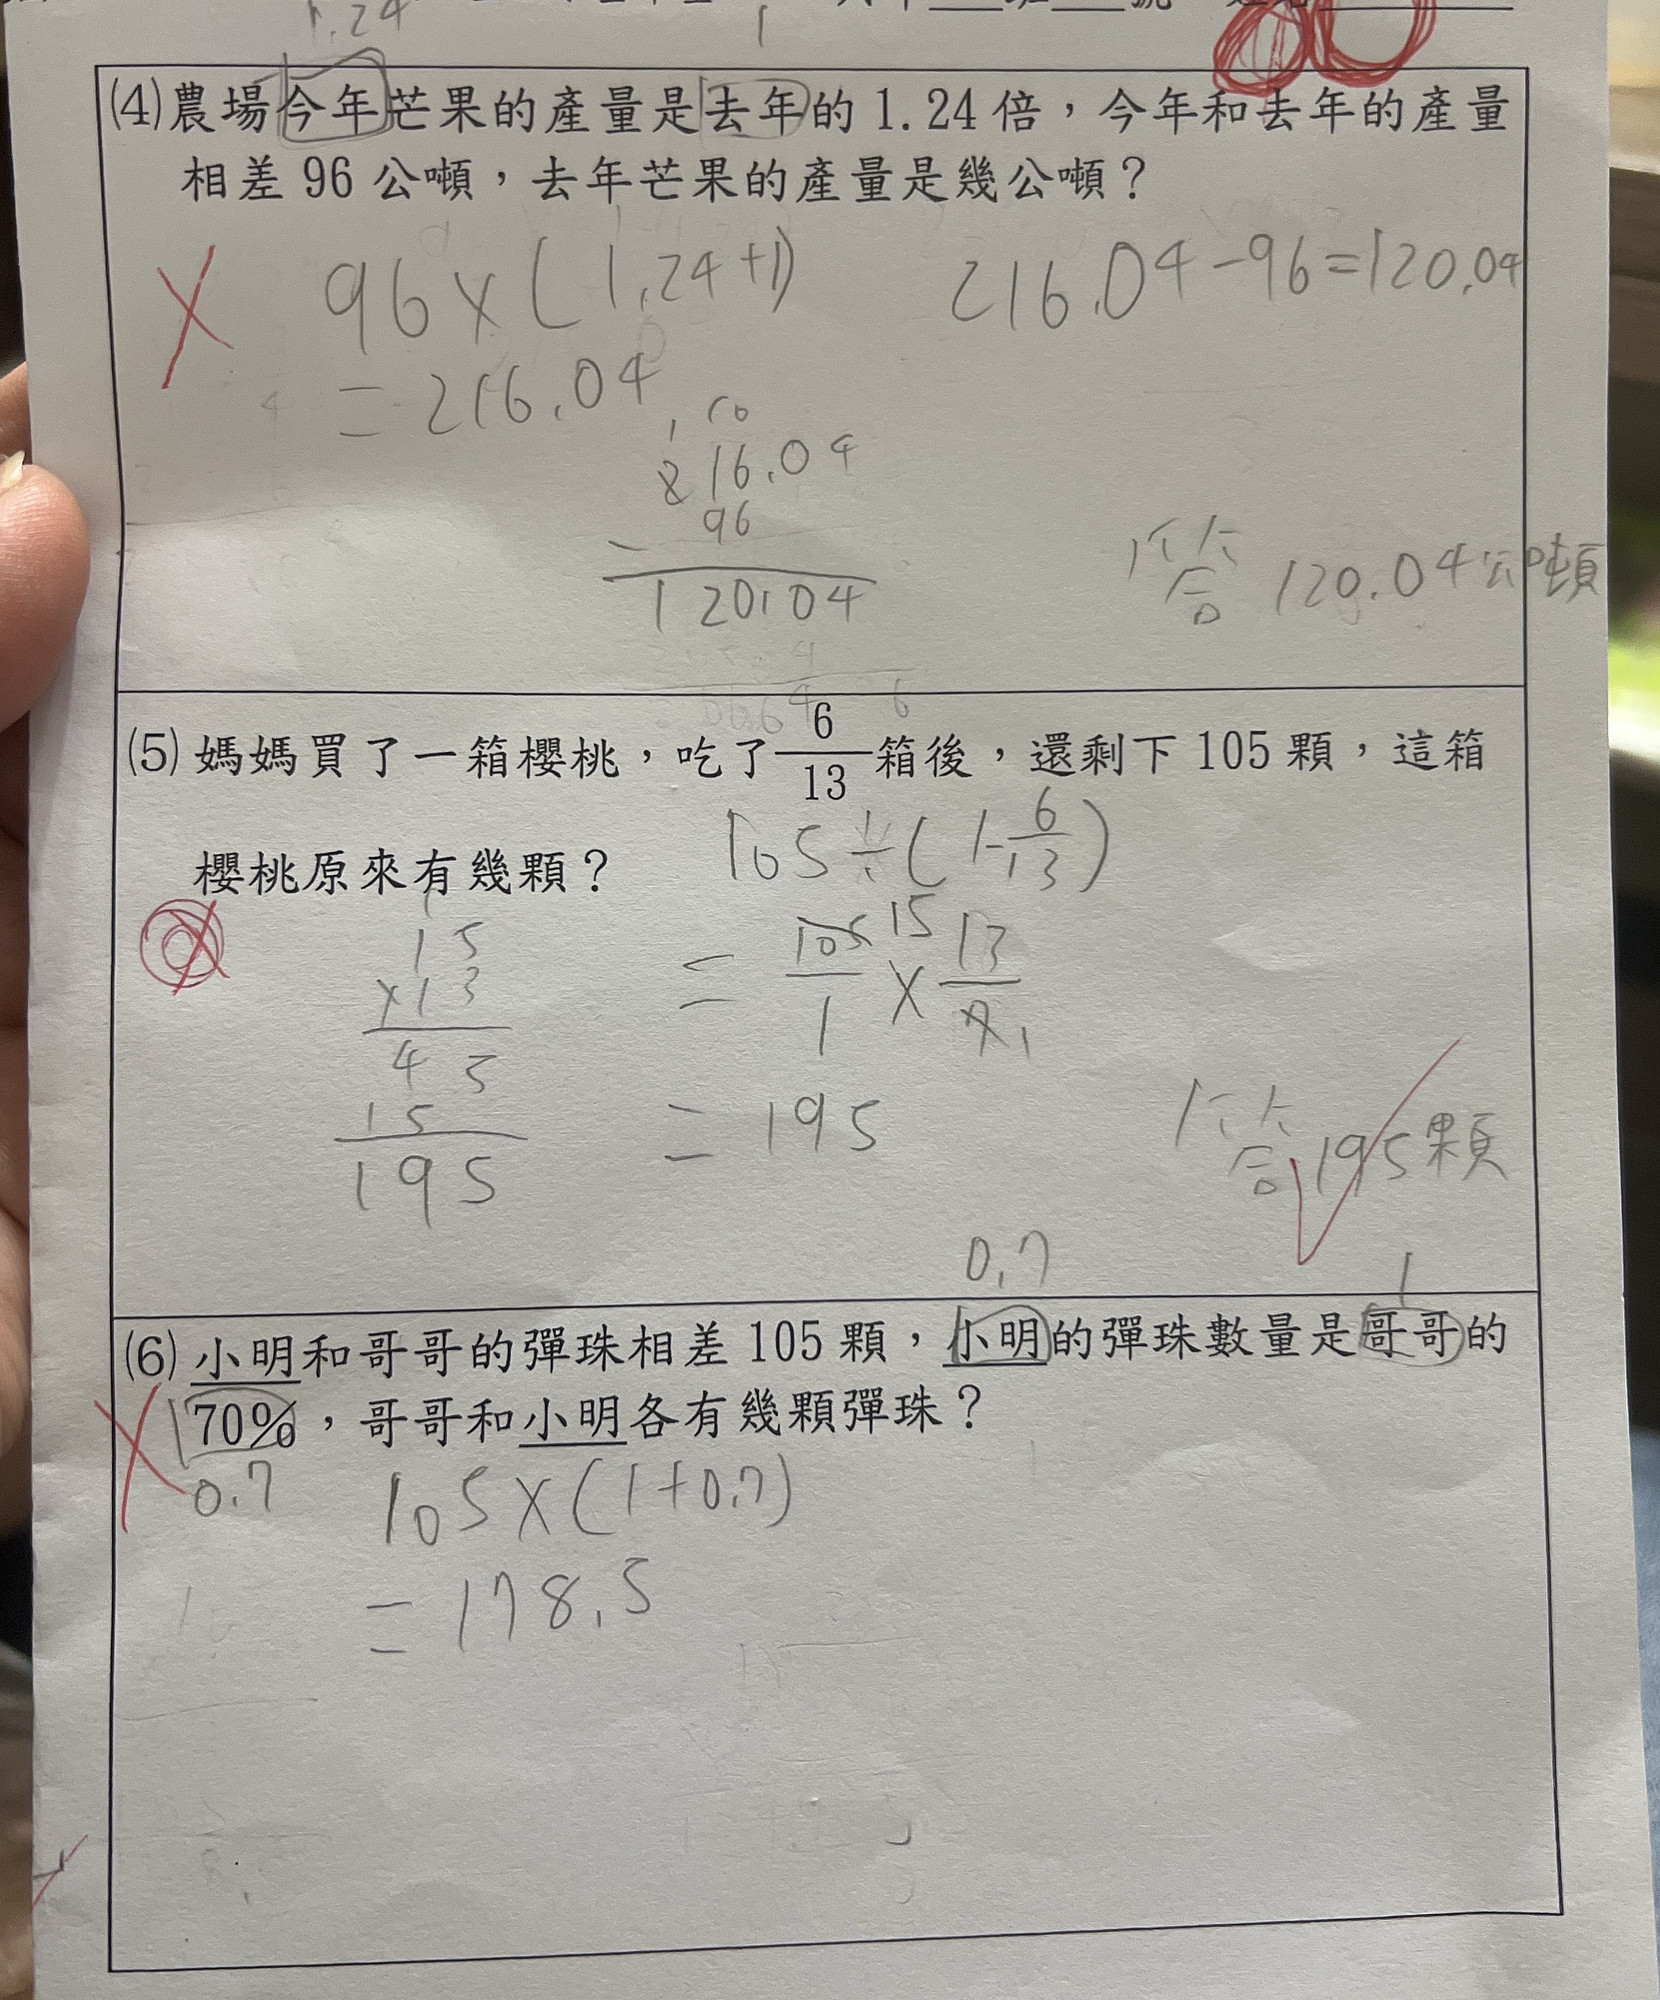 1.24
1
(4)農場今年芒果的產量是去年的 1.24 倍，今年和去年的產量
相差 96 公噸，去年芒果的產量是幾公噸？
96×(1.24+1)
=216.04
216.04-96=120.04
1 10
216.04
- 96
120.04
答 120.04公噸
(5) 媽媽買了一箱櫻桃，吃了 6/13 箱後，還剩下 105 顆，這箱
櫻桃原來有幾顆？
105÷(1-6/13)
15
×13
45
15
195
= 105/1 15 × 13/7 1
= 195
答 195顆
0.7
1
(6) 小明和哥哥的彈珠相差 105 顆，小明的彈珠數量是哥哥的
70%，哥哥和小明各有幾顆彈珠？
0.7
105×(1+0.7)
=178.5